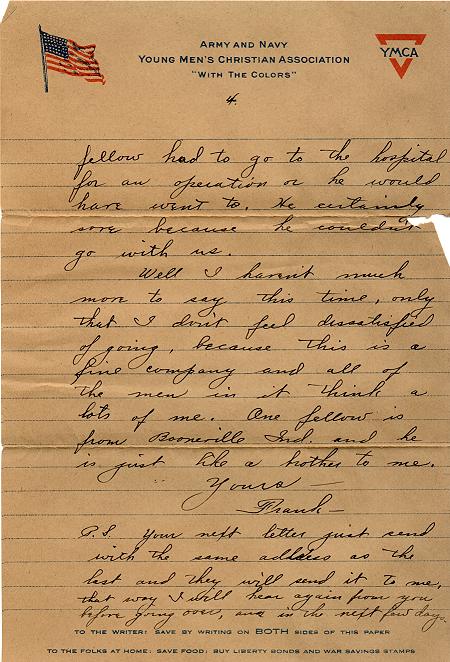 ARMY AND NAVY
YOUNG MEN'S CHRISTIAN ASSOCIATION
"WITH THE COLORS"
YMCA
4.
fellow had to go to the hospital
for an operation or he would
have went to. He certainly
sore because he couldn't
go with us.
Well I haven't much
more to say this time, only
that I don't feel dissatisfied
of going, because this is a
fine company and all of
the men in it think a
lots of me. One fellow is
from Booneville Ind. and he
is just like a brother to me.
Yours —
Frank —
P.S. Your next letter just send
with the same address as the
last and they will send it to me,
that way I will hear again from you
before going over, and in the next few days.
TO THE WRITER: SAVE BY WRITING ON BOTH SIDES OF THIS PAPER
TO THE FOLKS AT HOME: SAVE FOOD; BUY LIBERTY BONDS AND WAR SAVINGS STAMPS